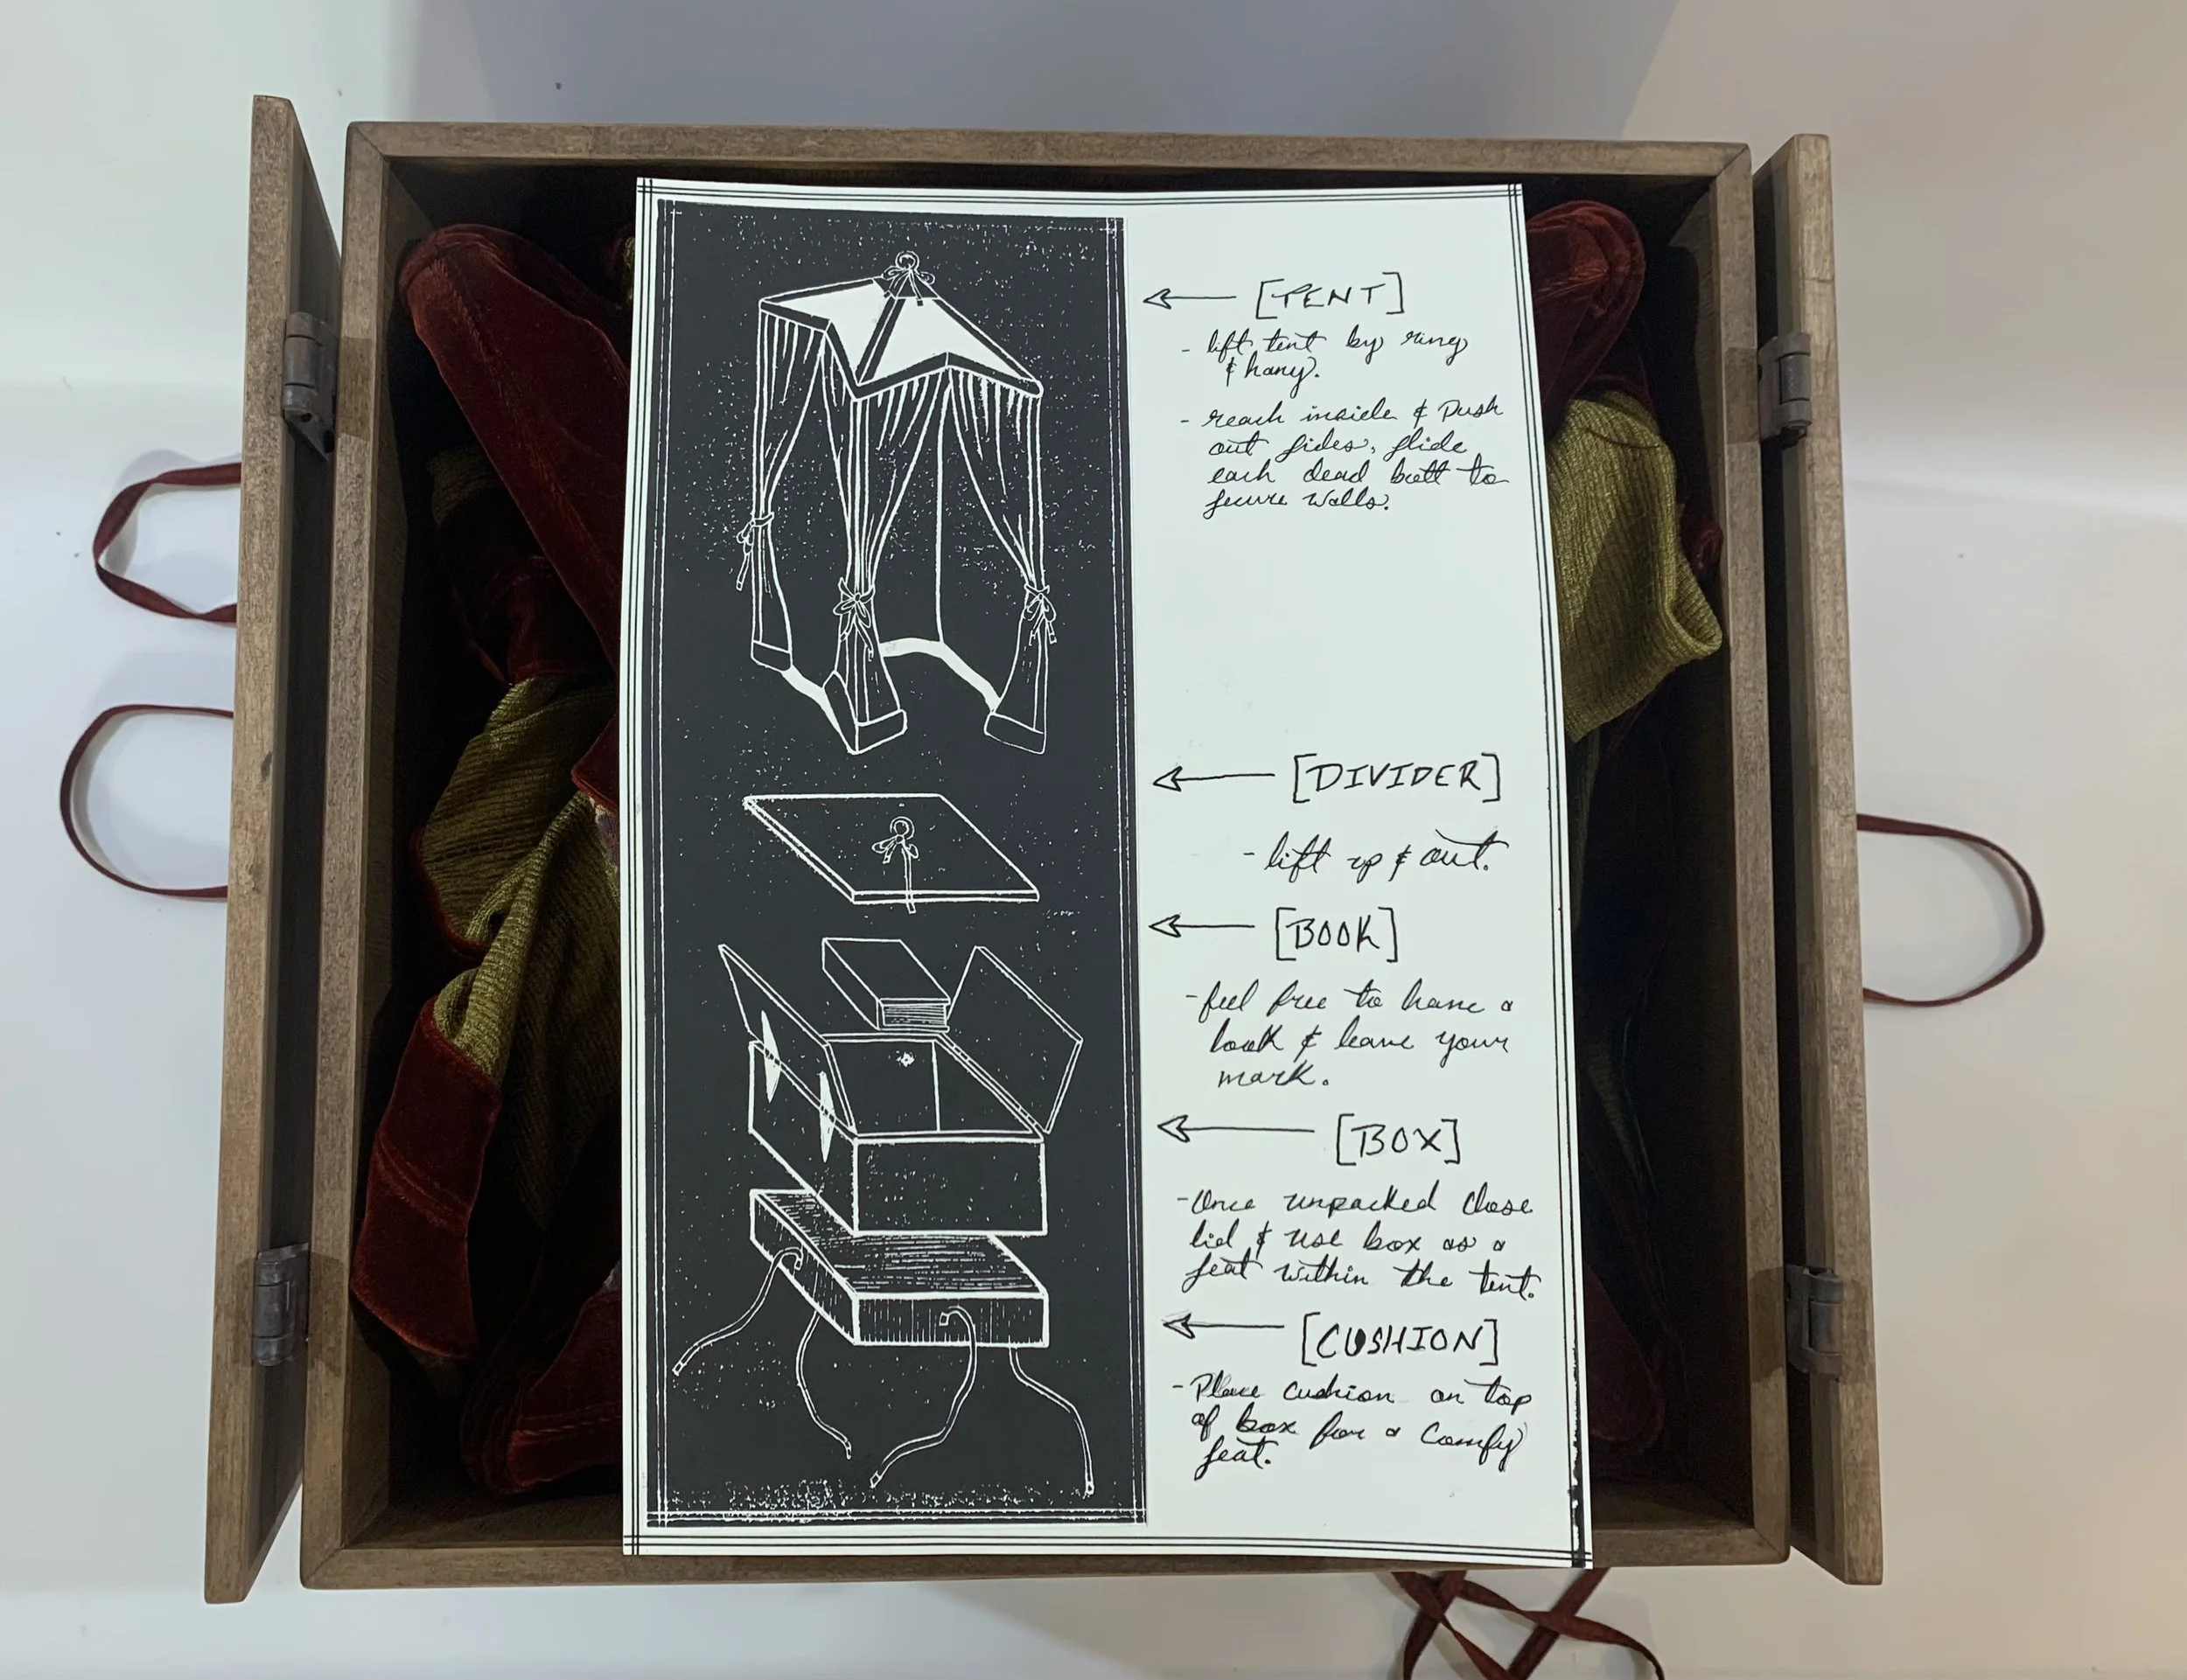 [TENT]
- lift tent by ring
& hang.
- reach inside & Push
out sides, slide
each dead bolt to
secure walls.
[DIVIDER]
- lift up & out.
[BOOK]
- feel free to have a
look & leave your
mark.
[BOX]
- Once unpacked close
lid & use box as a
seat within the tent.
[CUSHION]
- Place cushion on top
of box for a Comfy
seat.